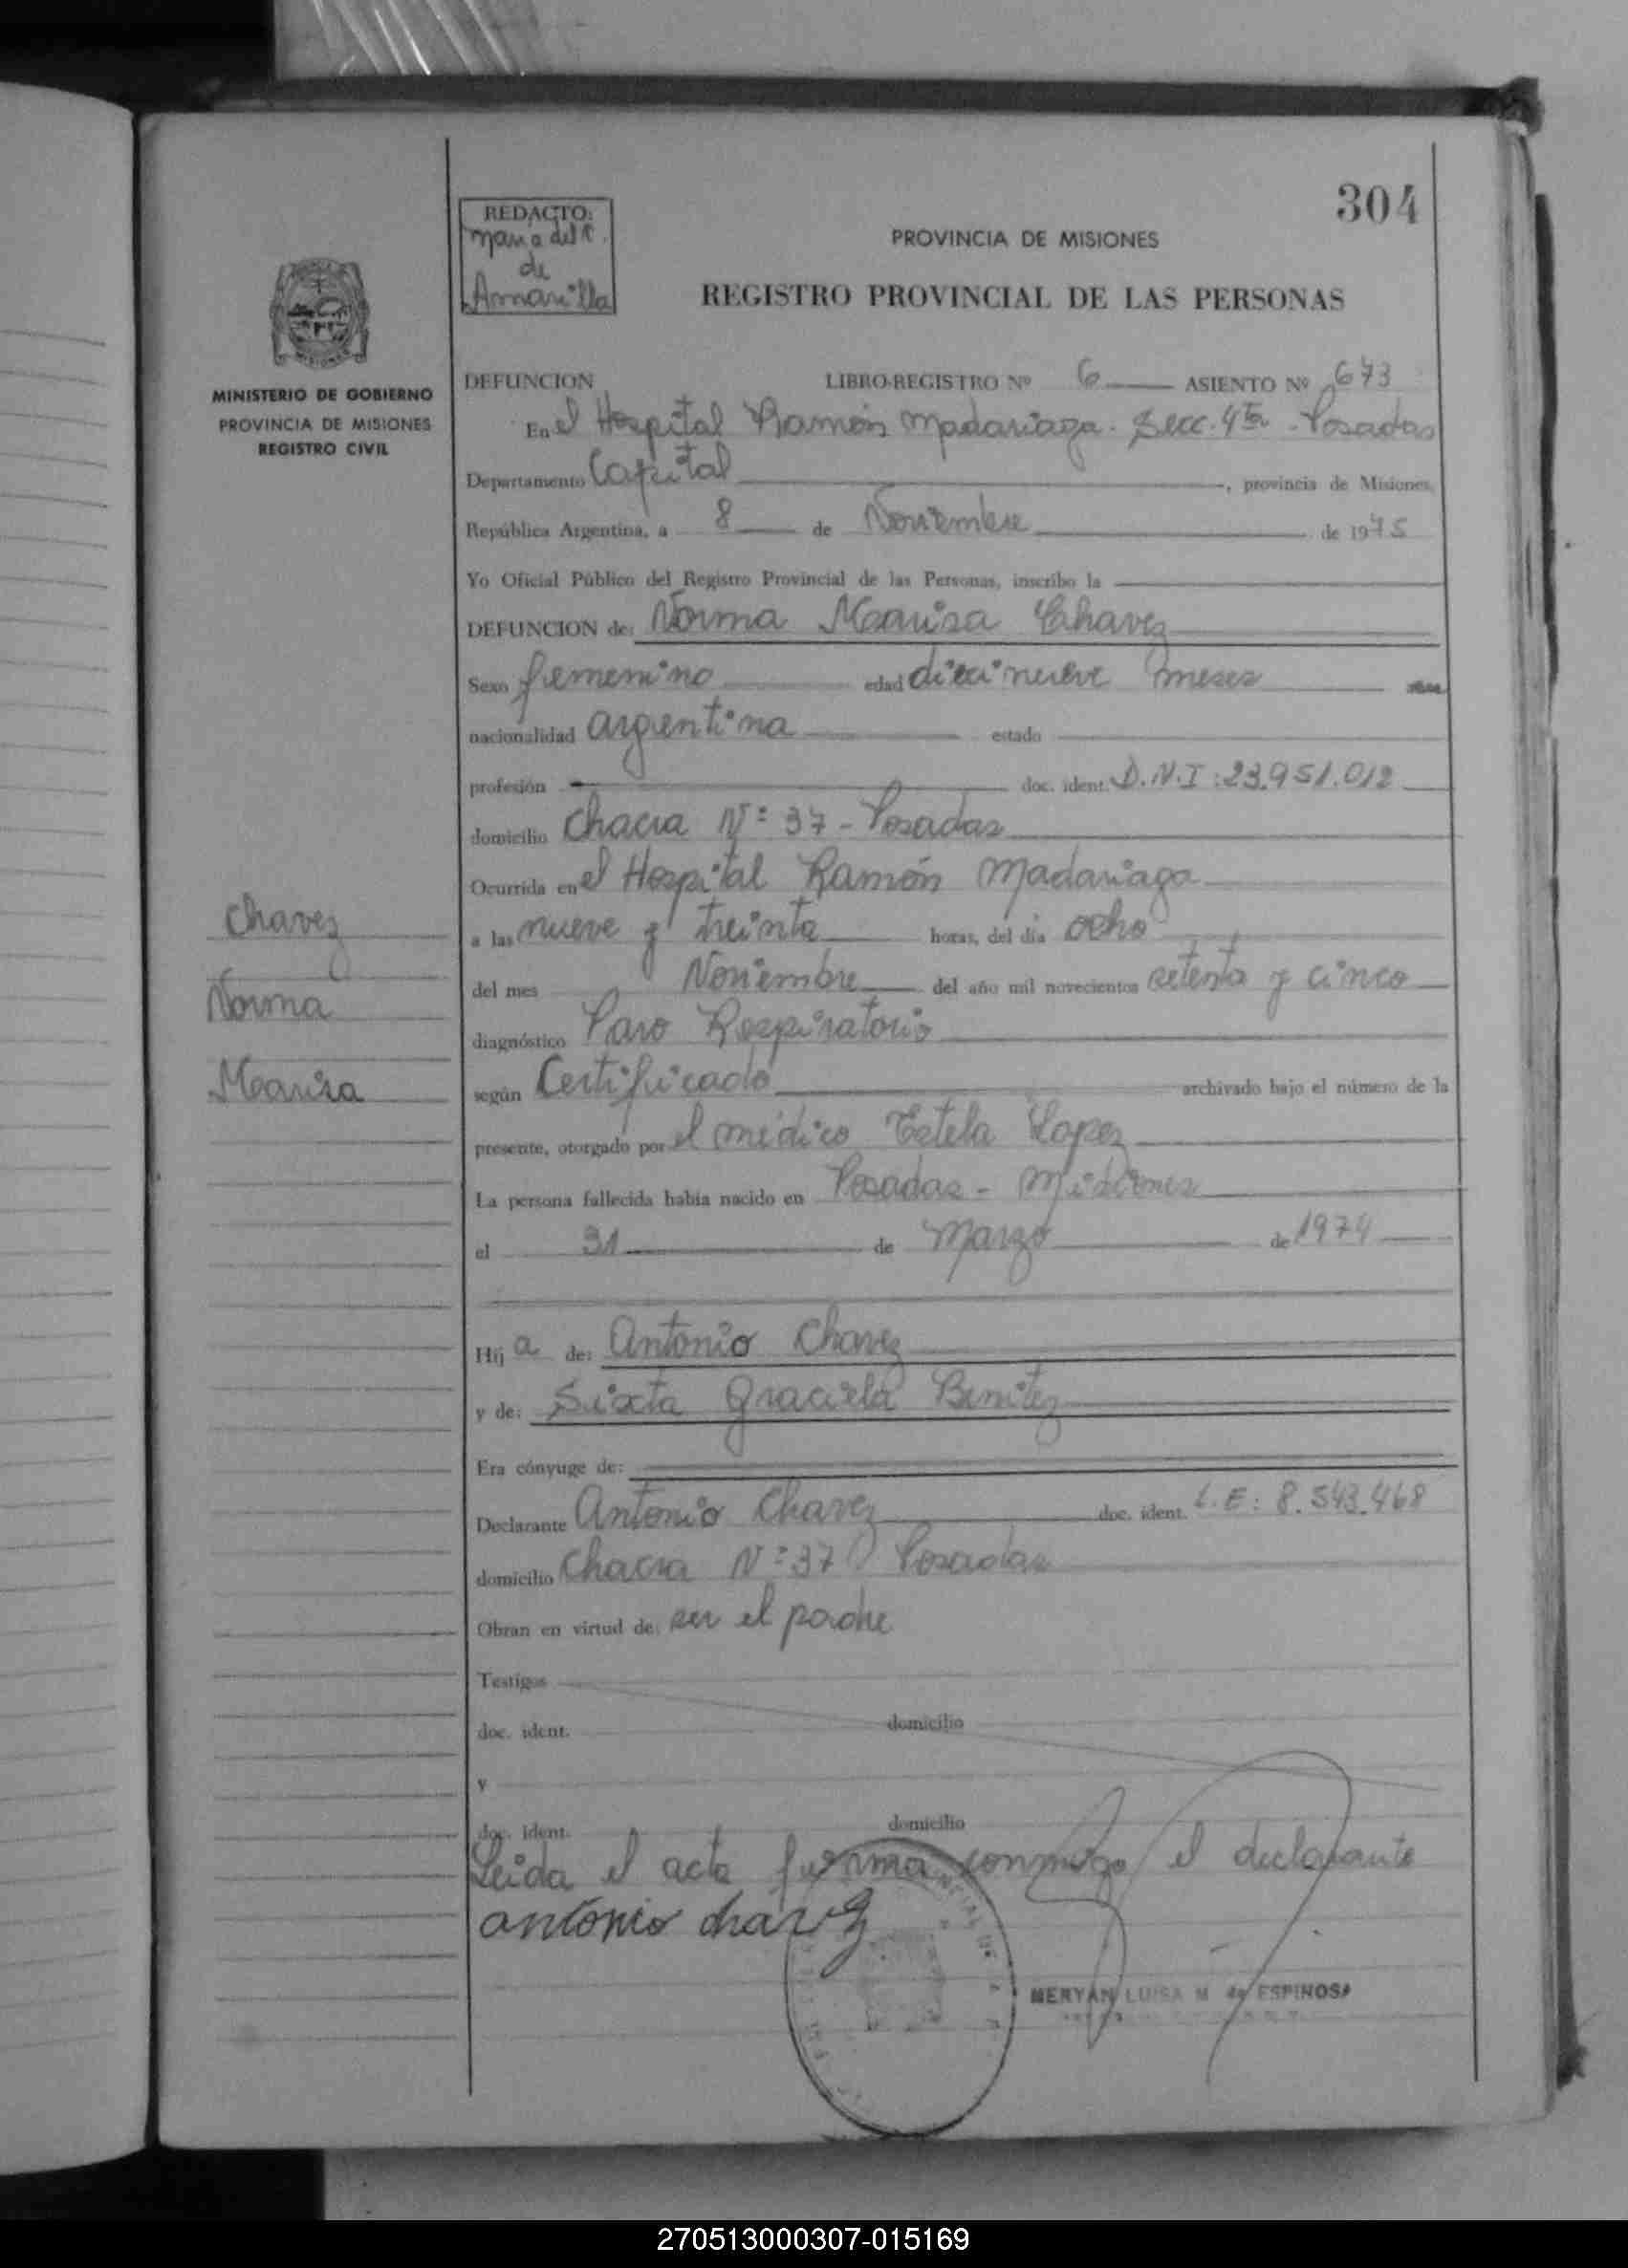 304
REDACTO:
Maria del C.
de
Amarilla
PROVINCIA DE MISIONES
REGISTRO PROVINCIAL DE LAS PERSONAS
MINISTERIO DE GOBIERNO
PROVINCIA DE MISIONES
REGISTRO CIVIL
DEFUNCION LIBRO-REGISTRO Nº 6 ASIENTO Nº 673
En el Hospital Ramón Madariaga. Secc. 4ta - Posadas
Departamento Capital, provincia de Misiones,
República Argentina, a 8 de Noviembre de 1975
Yo Oficial Público del Registro Provincial de las Personas, inscribo la
DEFUNCION de: Norma Marisa Chavez
Sexo femenino edad diecinueve meses
nacionalidad argentina estado
profesión doc. ident. D.N.I: 23.951.012
domicilio Chacra Nº 37 - Posadas
Ocurrida en el Hospital Ramón Madariaga
a las nueve y treinta horas, del día ocho
del mes Noviembre del año mil novecientos setenta y cinco
diagnóstico Paro Respiratorio
según Certificado archivado bajo el número de la
presente, otorgado por el médico Estela Lopez
La persona fallecida había nacido en Posadas - Misiones
el 31 de Marzo de 1974
Hij a de: Antonio Chavez
y de: Sixta Graciela Benitez
Era cónyuge de:
Declarante Antonio Chavez doc. ident. L.E: 8.543.468
domicilio Chacra Nº 37 Posadas
Obran en virtud de: ser el padre
Testigos
doc. ident. domicilio
y
doc. ident. domicilio
Leida el acta firma conmigo el declarante
antonio chavez
MERYAN LUISA M de ESPINOSA
Chavez
Norma
Marisa
270513000307-015169